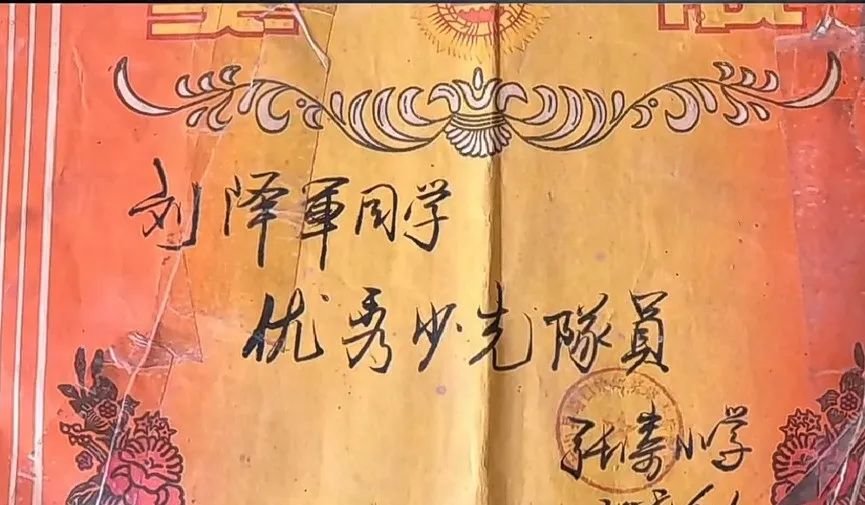 刘泽軍同学
优秀少先隊員
小学